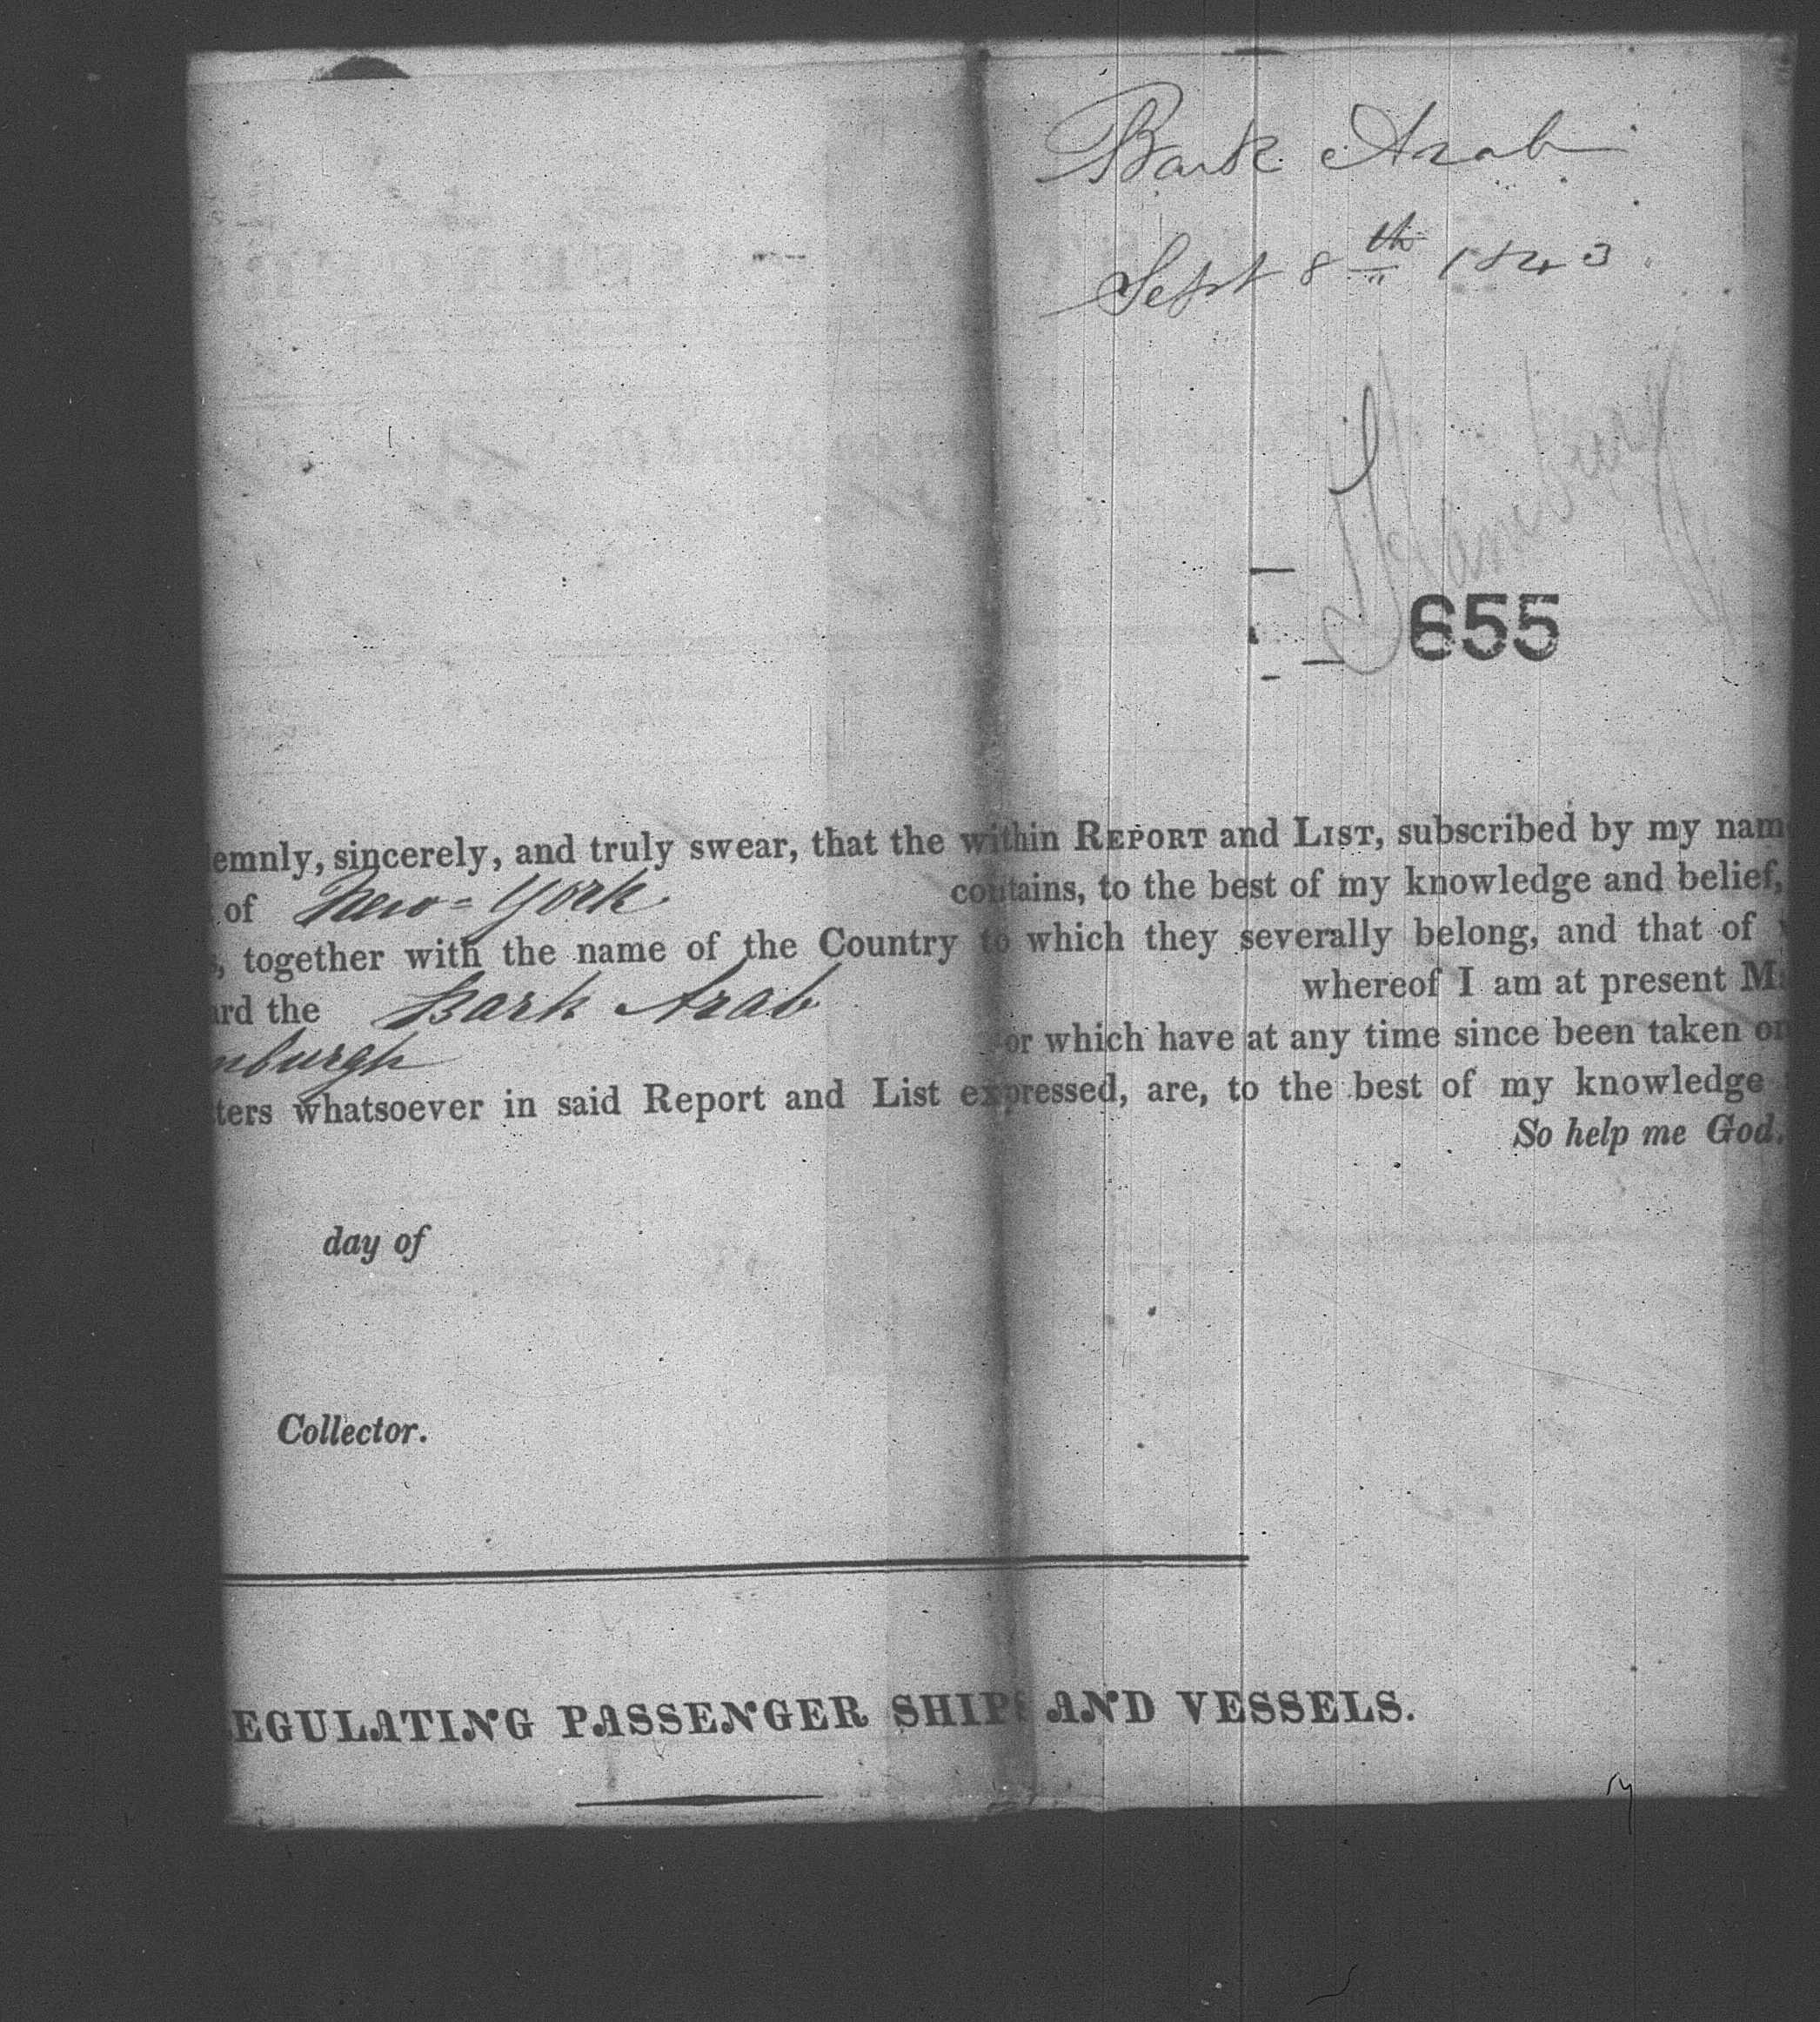 Bark Arab
Sept 8th 1843
Hamburg
655
emnly, sincerely, and truly swear, that the within REPORT and LIST, subscribed by my nam
of New-York contains, to the best of my knowledge and belief,
, together with the name of the Country to which they severally belong, and that of
rd the Bark Arab whereof I am at present M
nburgh or which have at any time since been taken on
ters whatsoever in said Report and List expressed, are, to the best of my knowledge
So help me God.
day of
Collector.
EGULATING PASSENGER SHIPS AND VESSELS.